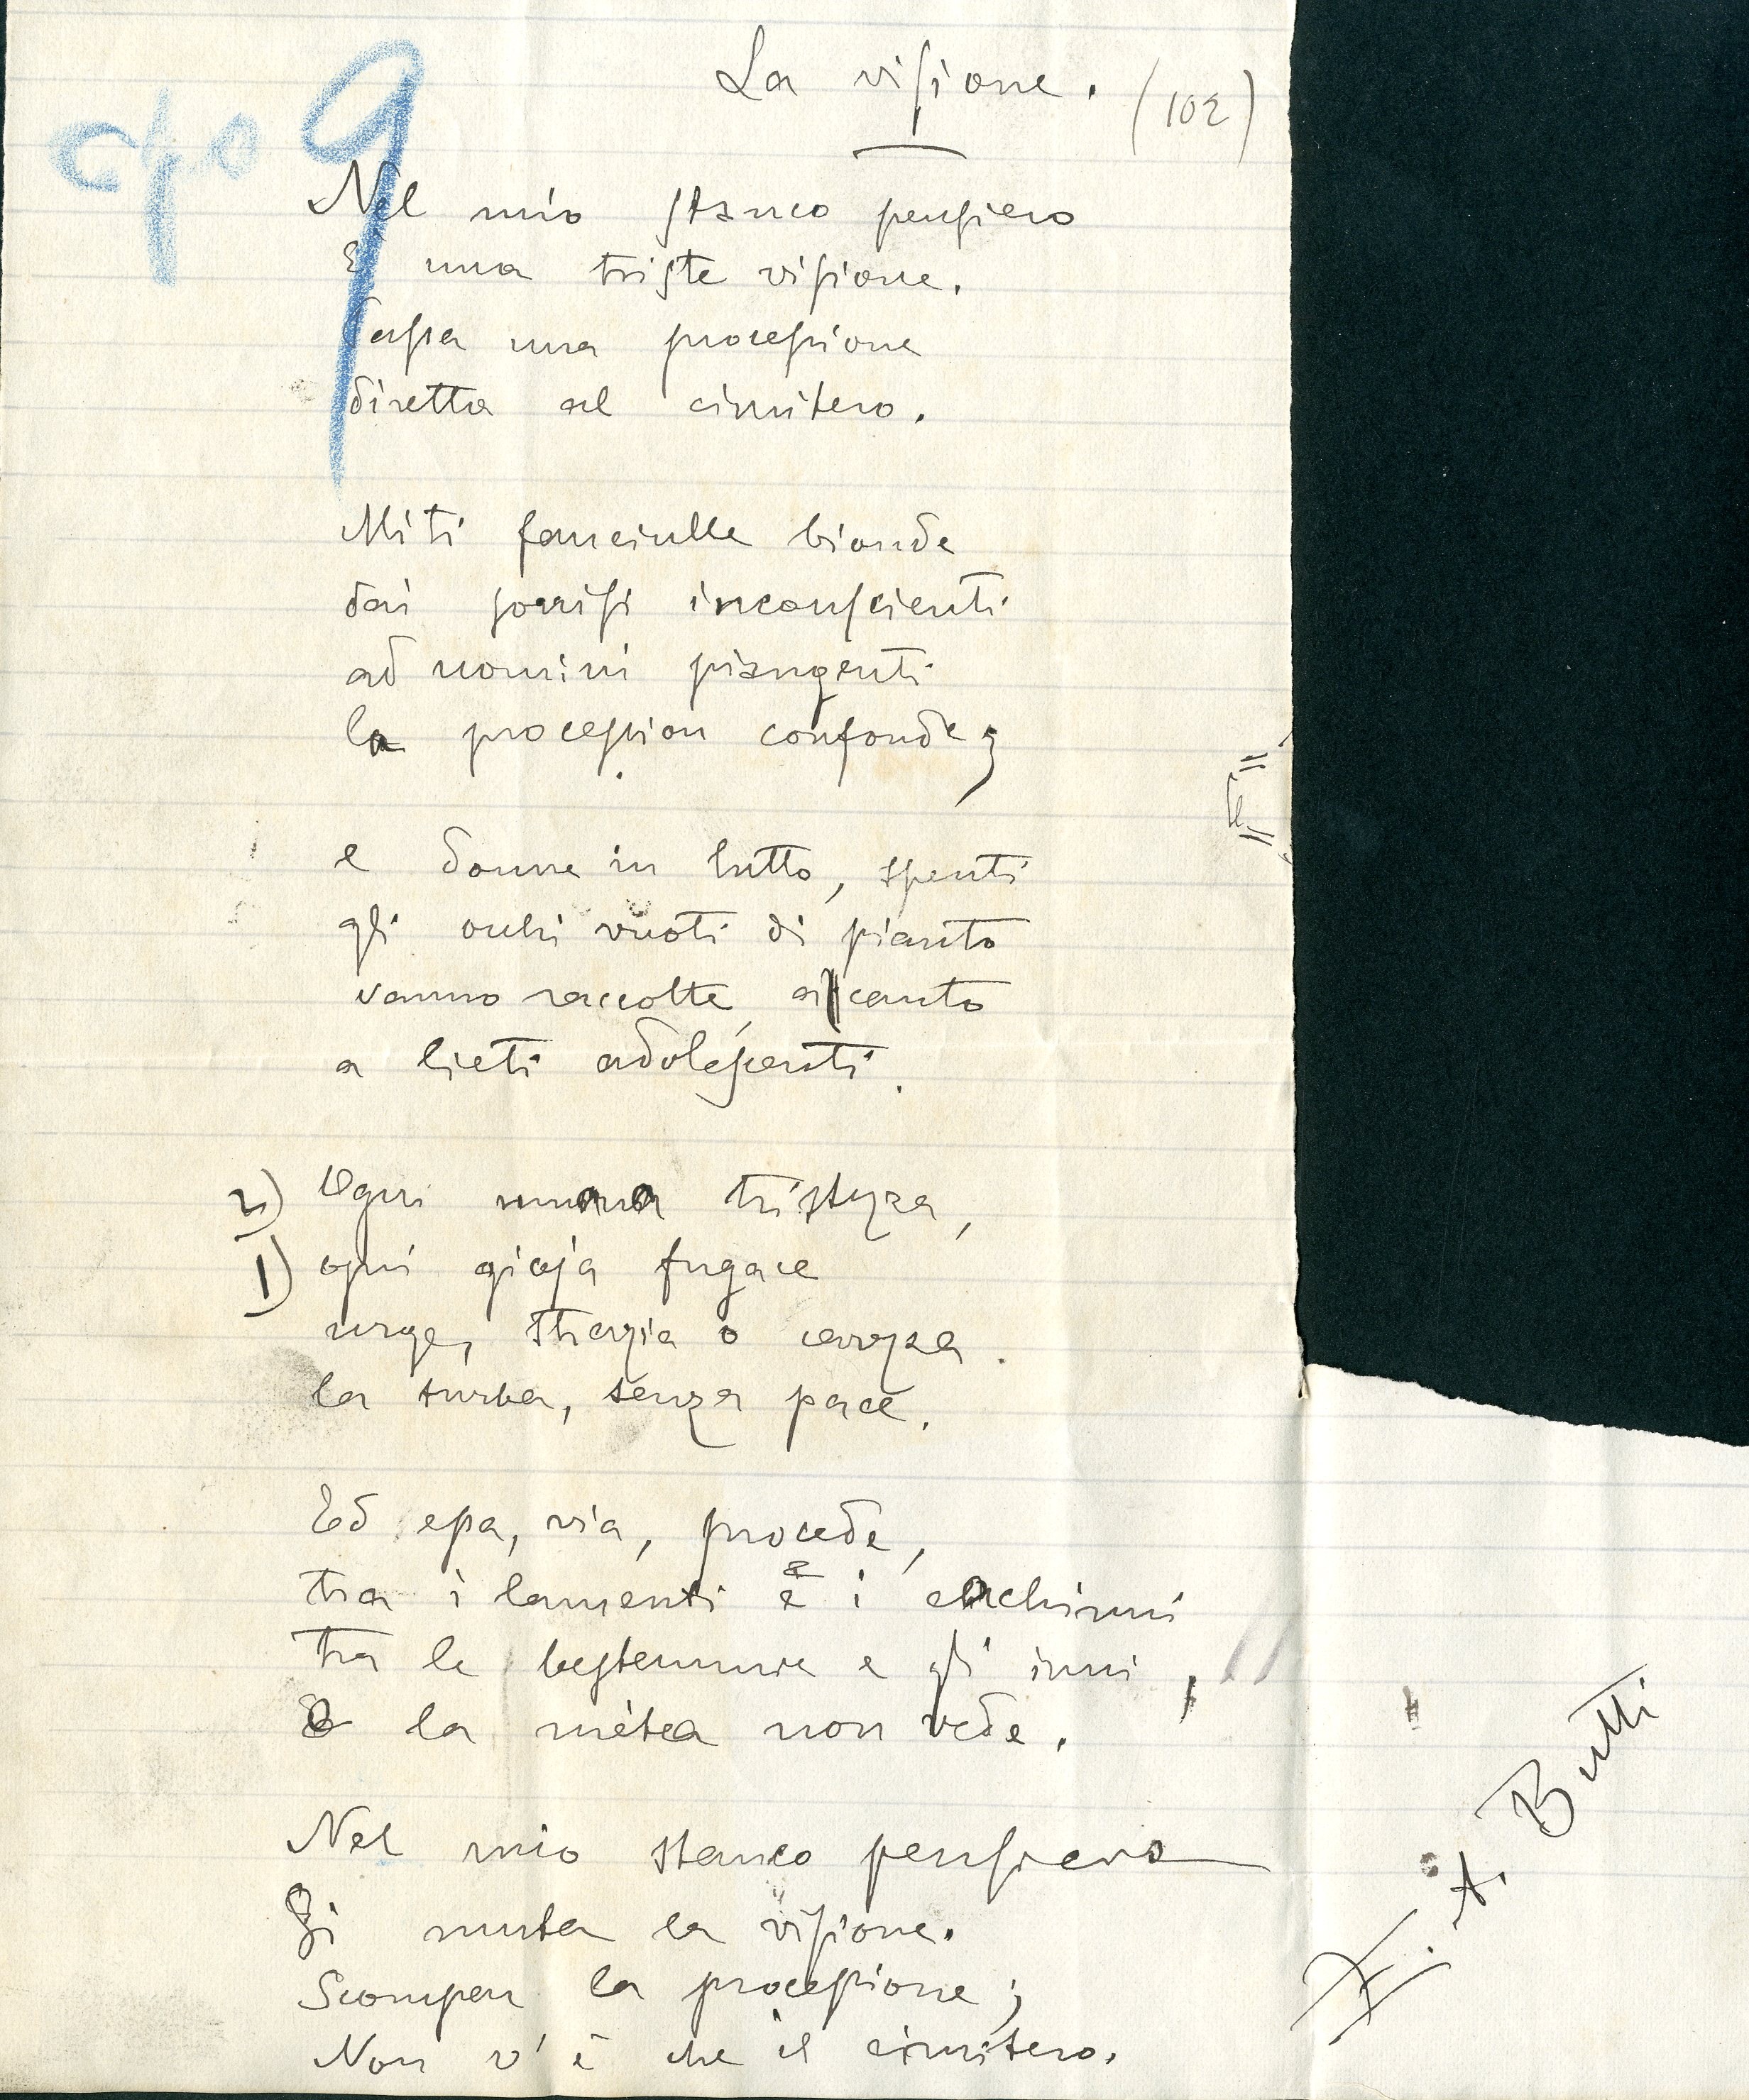 La visione. (102)
cpo 9
Nel mio stanco pensiero
È una triste visione.
Passa una processione
diretta al cimitero.
Miti fanciulle bionde
dai sorrisi inconscienti
ad uomini piangenti
la procession confonde;
e donne in lutto, spenti
gli occhi vuoti di pianto
vanno raccolte, accanto
a lieti adolescenti.
2) Ogni umana tristezza,
1) ogni gioja fugace
urge, strazia o carezza
la turba, senza pace.
Ed essa, via, procede,
tra i lamenti e i cachinni
tra le bestemmie e gli inni,
e la mèta non vede.
Nel mio stanco pensiero
Si muta la visione.
Scompar la processione;
Non v'è che il cimitero.
E. A. Butti